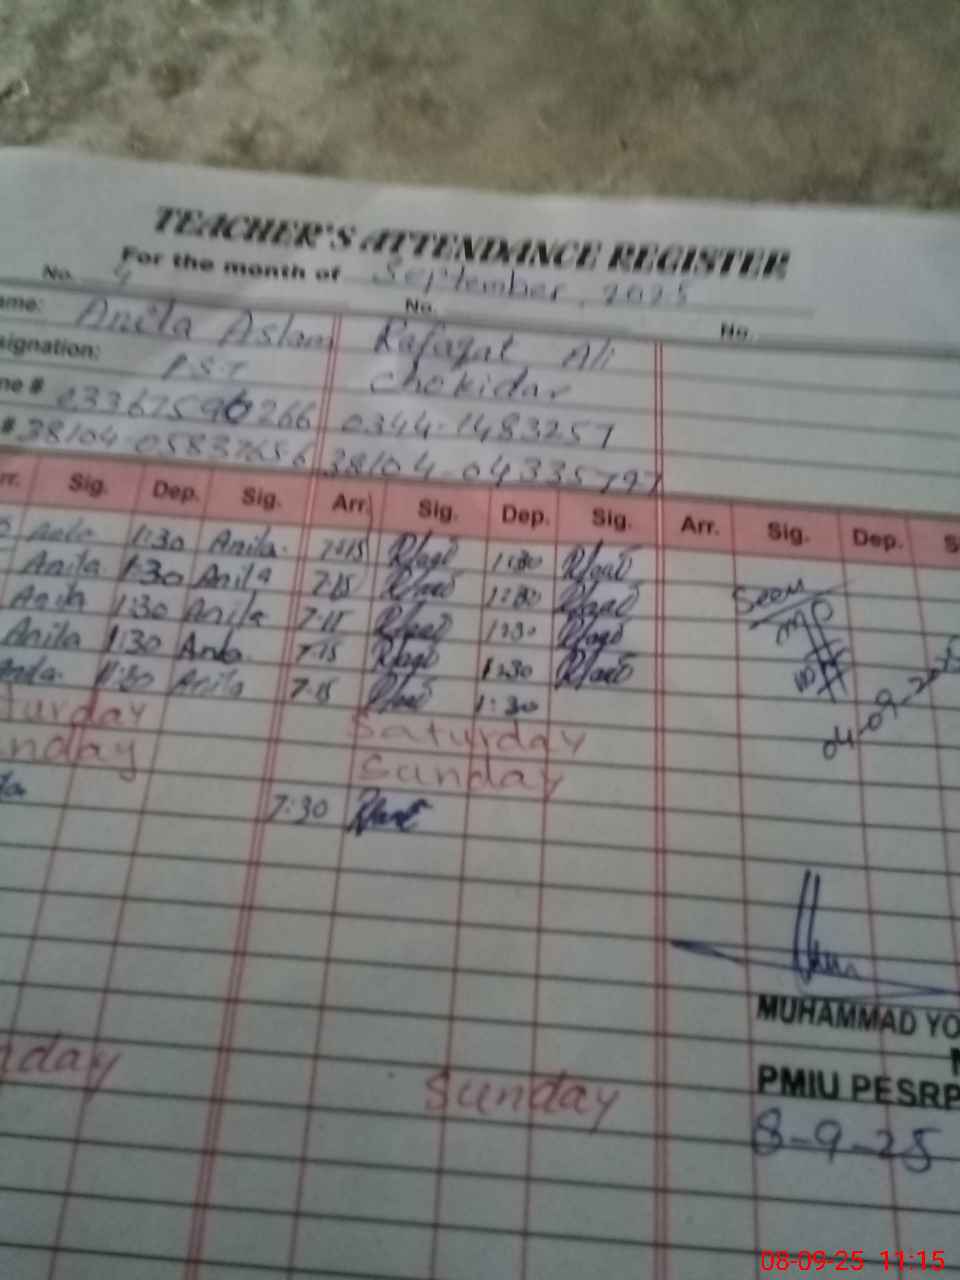 TEACHER'S ATTENDANCE REGISTER
For the month of September, 2025
No. 4 No. No.
ame: Anila Aslam Rafaqat Ali
signation: P.S.T Chokidar
ne # 03367590266 0344-1483257
# 38104-05837656 38104-04335797
rr. Sig. Dep. Sig. Arr. Sig. Dep. Sig. Arr. Sig. Dep. S
Anila 1:30 Anila 7:15 1:30
Anila 1:30 Anila 7:15 1:30
Anila 1:30 Anila 7:15 1:30
Anila 1:30 Anila 7:15 1:30
Anila 1:30 Anila 7:15 1:30
Seen
04-09-2025
turday Saturday
nday Sunday
7:30
MUHAMMAD YO
PMIU PESRP
nday Sunday
8-9-25
08-09-25 11:15